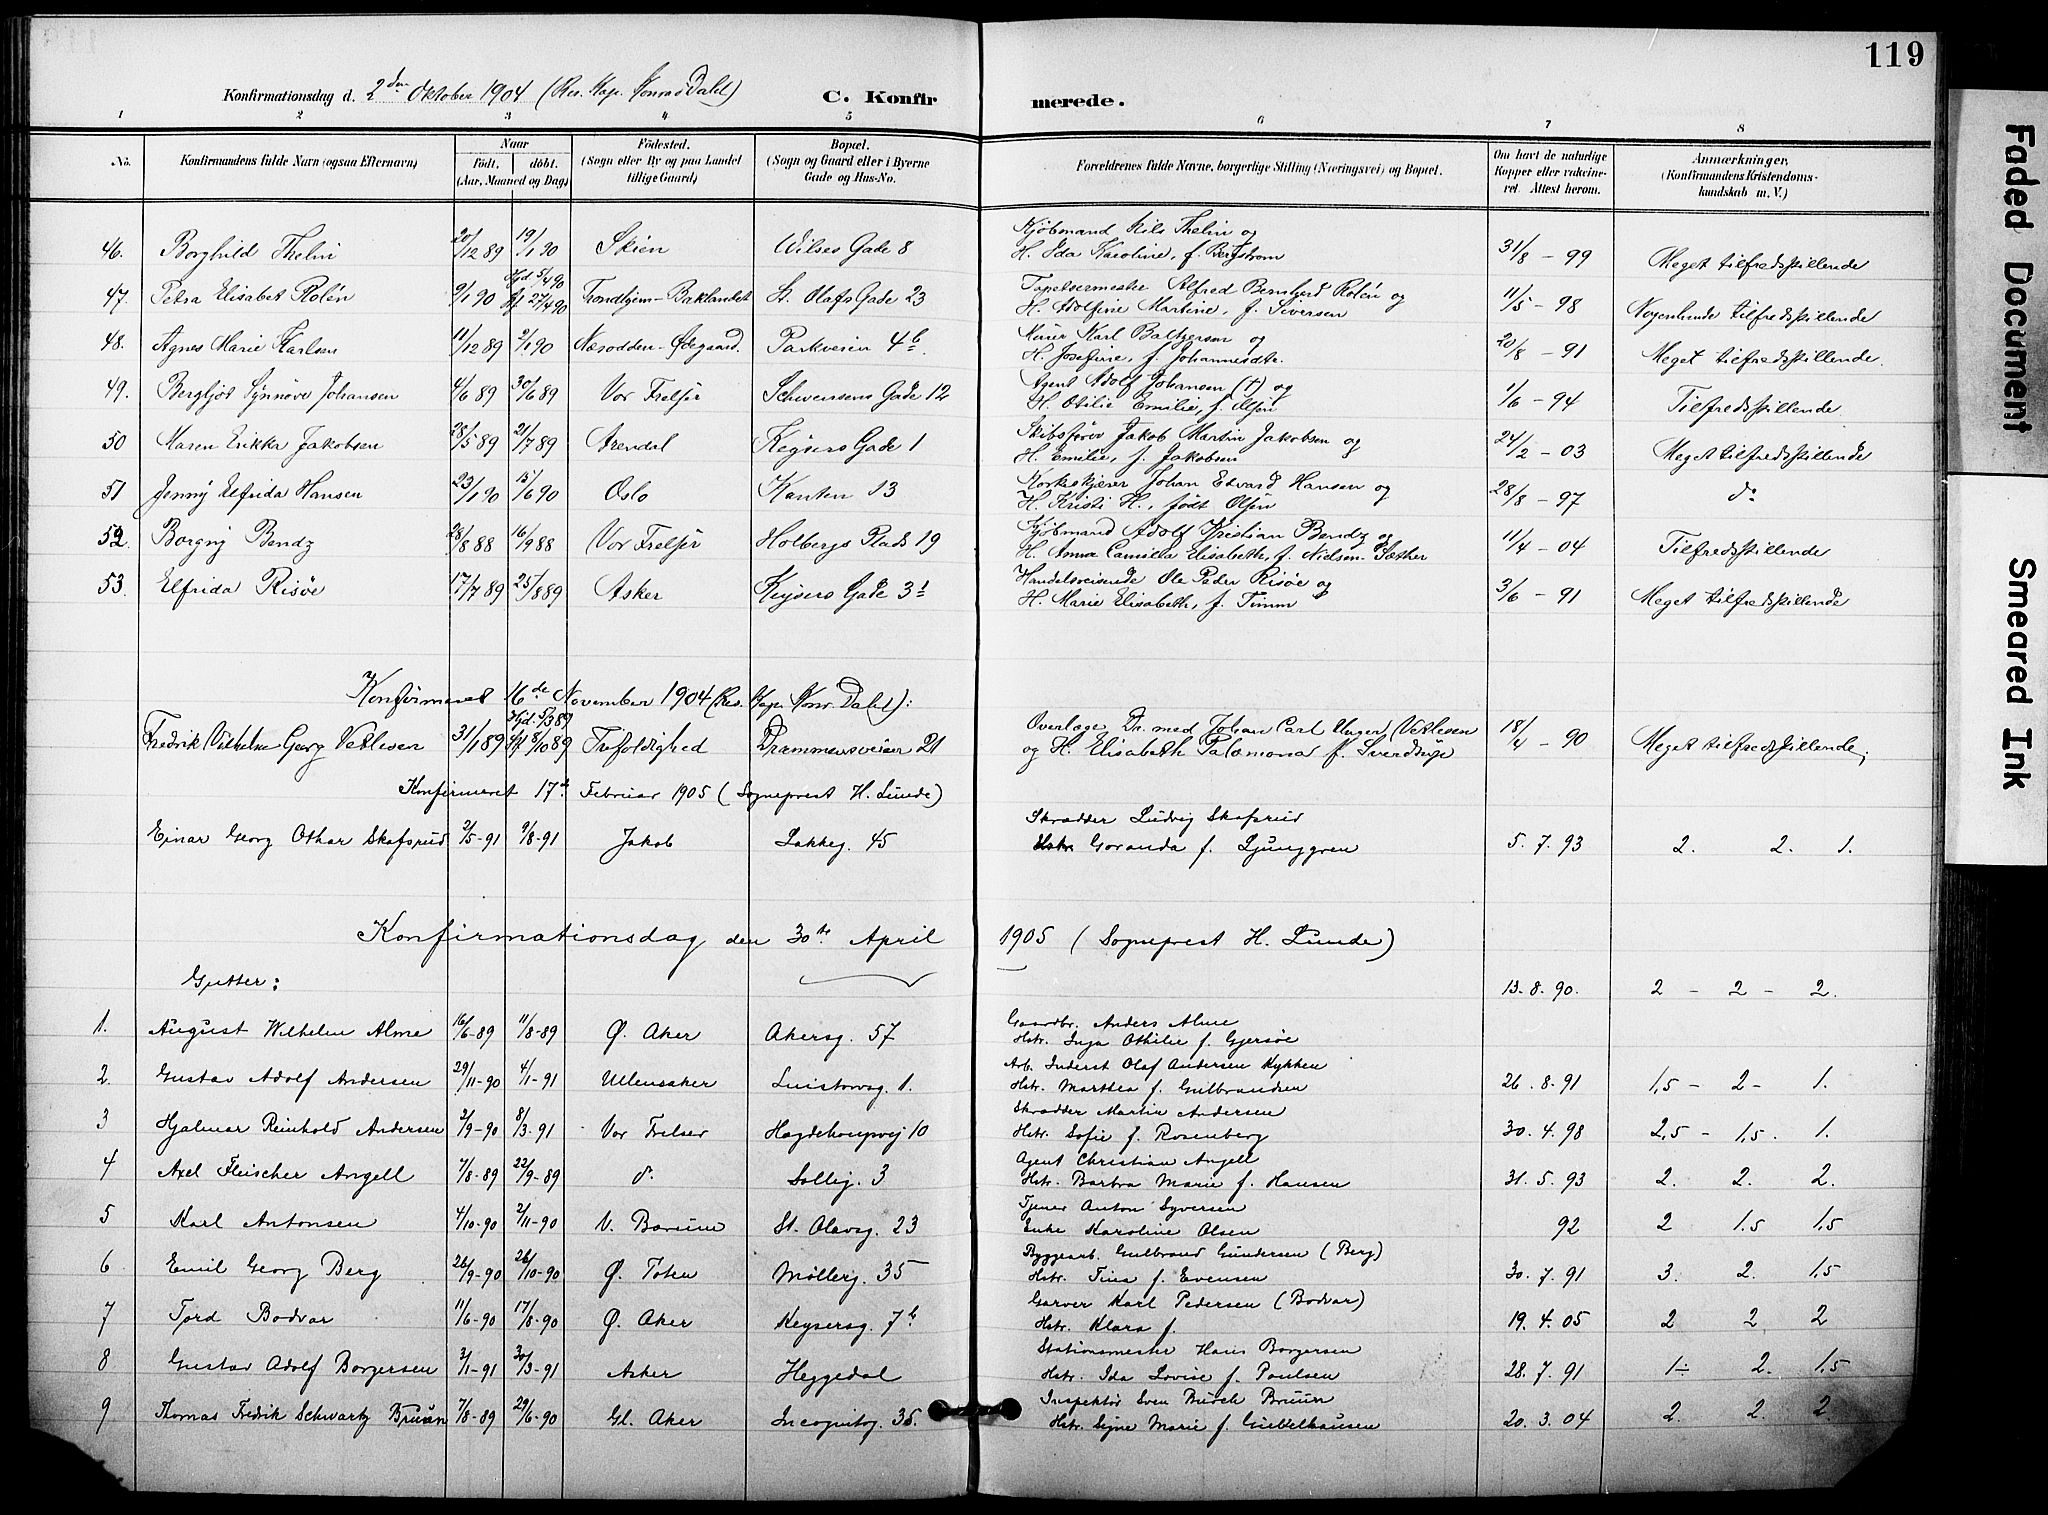 119
Konfirmationsdag d. 2den Oktober 1904 (Res. Kap. Konrad Dahl) C. Konfirmerede.
1 2 3 4 5 6 7 8
No. Konfirmandens fulde Navn (ogsaa Efternavn) Naar født. døbt. (Aar, Maaned og Dag) Fødested. (Sogn eller By og paa Landet tillige Gaard) Bopæl. (Sogn og Gaard eller i Byerne Gade og Hus-No. Forældrenes fulde Navne, borgerlige Stilling (Næringsvei) og Bopæl. Om havt de naturlige Kopper eller vakcineret. Attest herom. Anmærkninger. (Konfirmandens Kristendomskundskab m. V.)
46. Borghild Thelin 20/12 89 19/1 90 Skien Wilses Gade 8 Kjøbmand Nils Thelin og
H. Ida Karoline, f. Bergstrøm 31/8 - 99 Meget tilfredsstillende
47. Petra Elisabet Rolén 9/1 90 Hjd. 5/4 90 Kf. 27/4 90 Trondhjem-Baklandet St. Olafs Gade 23 Tapetsermester Alfred Bernhard Rolén og
H. Adolfine Martine, f. Siversen 11/5 - 98 Nogenlunde tilfredsstillende
48. Agnes Marie Karlsen 11/12 89 2/1 90 Næsodden-Ødegaard. Parkveien 4b. Murer Karl Baltzersen og
H. Josefine, f. Johannesdtr. 20/8 - 91 Meget tilfredsstillende.
49. Bergljot Synnøve Johansen 4/6 89 30/6 89 Vor Frelser Schwensens Gade 12 Agent Adolf Johansen (†) og
H. Otilie Emilie, f. Olsen 1/6 - 94 Tilfredsstillende
50 Maren Erikka Jakobsen 28/5 89 21/7 89 Arendal Keysers Gade 1 Skibsfører Jakob Martin Jakobsen og
H. Emilie, f. Jakobsen 24/2 - 03 Meget tilfredsstillende
51 Jenny Elfrida Hansen 23/1 90 15/6 90 Oslo Kanten 13 Korkeskjærer Johan Edvard Hansen og
H. Kristi H., født Olsen 28/8 - 97 do
52. Borgny Bendz 28/8 88 16/9 88 Vor Frelser Holbergs Plads 19 Kjøbmand Adolf Kristian Bendz og
H. Anna Camilla Elisabeth, f. Nielsen-Sæther 11/4 - 04 Tilfredsstillende
53. Elfrida Risøe 17/7 89 25/8 89 Asker Keysers Gade 3 Handelsreisende Ole Peder Risøe og
H. Marie Elisabeth, f. Timm 3/6 - 91 Meget tilfredsstillende
Konfirmeret 16de November 1904 (Res. Kap. Konr. Dahl):
Fredrik Vilhelm Georg Vetlesen 31/1 89 Hjd. 5/3 89 Kf. 8/10 89 Trefoldighed Drammensveien 21 Overlæge Dr. med Johan Carl Unger Vetlesen
og H. Elisabeth Palæmona f. Sverdrup 18/4 - 90 Meget tilfredsstillende;
Konfirmeret 17de Februar 1905 (Sogneprest H. Lunde)
Einar Georg Othar Skafsrud 2/5-91 9/8-91 Jakob Lakkeg. 45 Skrædder Ludvig Skafsrud
Hstr. Goranda f. Ljunggren 5. 7. 93 2. 2. 1.
Konfirmationsdag den 30te April 1905 (Sogneprest H. Lunde)
Gutter: 13. 8. 90. 2 - 2 - 2.
1. August Wilhelm Alme 16/6-89 11/8-89 Ø. Aker Akersg. 57 Gaardbr. Anders Alme
Hstr. Inga Othilie f. Gjersøe
2. Gustav Adolf Andersen 29/11-90 4/1-91 Ullensaker Luistowsg 1. Arb. Inderst Olaf Andersen Kykken
Hstr. Marthea f. Gulbrandsen 26. 8. 91 1,5 - 2 - 1.
3 Hjalmar Reinhold Andersen 2/9-90 8/3-91 Vor Frelser Hagdehougvej 10 Skrædder Martin Andersen
Hstr. Sofie f. Rosenberg 30. 4. 98 2,5 - 1,5. 1.
4 Axel Fleischer Angell 7/8-89 22/9-89 do Sollig. 3 Agent Christian Angell
Hstr. Barbra Marie f. Hansen 31. 5. 93 2. 2. 2.
5 Karl Antonsen 4/10-90 2/11-90 V. Bærum St. Olavsg. 23 Tjener Anton Syversen
Enke Karoline Olsen 92 2 1,5 1,5
6 Emil Georg Berg 26/9-90 26/10-90 Ø. Toten Møllerg. 35 Byggearb. Gulbrand Gundersen (Berg)
Hstr. Tina f. Evensen 30. 7. 91 3. 2. 1,5
7 Tord Bodvar 11/6-90 17/8-90 Ø. Aker Keysersg. 7b Garver Karl Pedersen (Bodvar)
Hstr. Klara f. 19. 4. 05 2 2, 2
8 Gustav Adolf Borgersen 2/1-91 30/3-91 Asker Heggedal Stationsmester Hans Borgersen
Hstr. Ida Lovise f. Poulsen 28. 7. 91 1÷ 2. 1,5
9 Thomas Fredrik Schwartz Bruun 7/8-89 29/6-90 Gl. Aker Incognitog. 35. Inspektør Sven Busch Bruun
Hstr. Signe Marie f. Giebelhausen 20. 3. 04 2. 2. 2
Faded Document
Smeared Ink